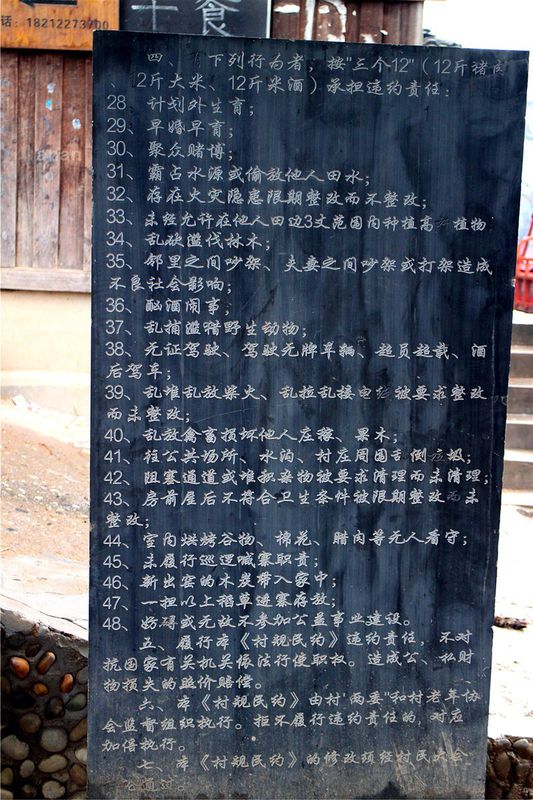 话：18212273700
食
四、有下列行为者，按"三个12"（12斤猪肉
2斤大米、12斤米酒）承担违约责任：
28、计划外生育；
29、早婚早育；
30、聚众赌博；
31、霸占水源或偷放他人田水；
32、存在火灾隐患限期整改而不整改；
33、未经允许在他人田边3丈范围内种植高 植物
34、乱砍滥伐林木；
35、邻里之间吵架、夫妻之间吵架或打架造成
不良社会影响；
36、酗酒闹事；
37、乱捕滥猎野生动物；
38、无证驾驶、驾驶无牌车辆、超员超载、酒
后驾车；
39、乱堆乱放柴火、乱拉乱接电 被要求整改
而未整改；
40、乱放禽畜损坏他人庄稼、果木；
41、往公共场所、水沟、村庄周围乱倒垃圾；
42、阻塞通道或堆积杂物被要求清理而未清理；
43、房前屋后不符合卫生条件被限期整改而未
整改；
44、室内烘烤谷物、棉花、腊肉等无人看守；
45、未履行巡逻喊寨职责；
46、新出窑的木炭带入家中；
47、一担以上稻草进寨存放；
48、妨碍或无故不参加公益事业建设。
五、履行本《村规民约》违约责任，不对
抗国家有关机关依法行使职权。造成公、私财
物损失的照价赔偿。
六、本《村规民约》由村"两委"和村老年协
会监督组织执行。拒不履行违约责任的，对应
加倍执行。
七、本《村规民约》的修改须经村民大会
通过。